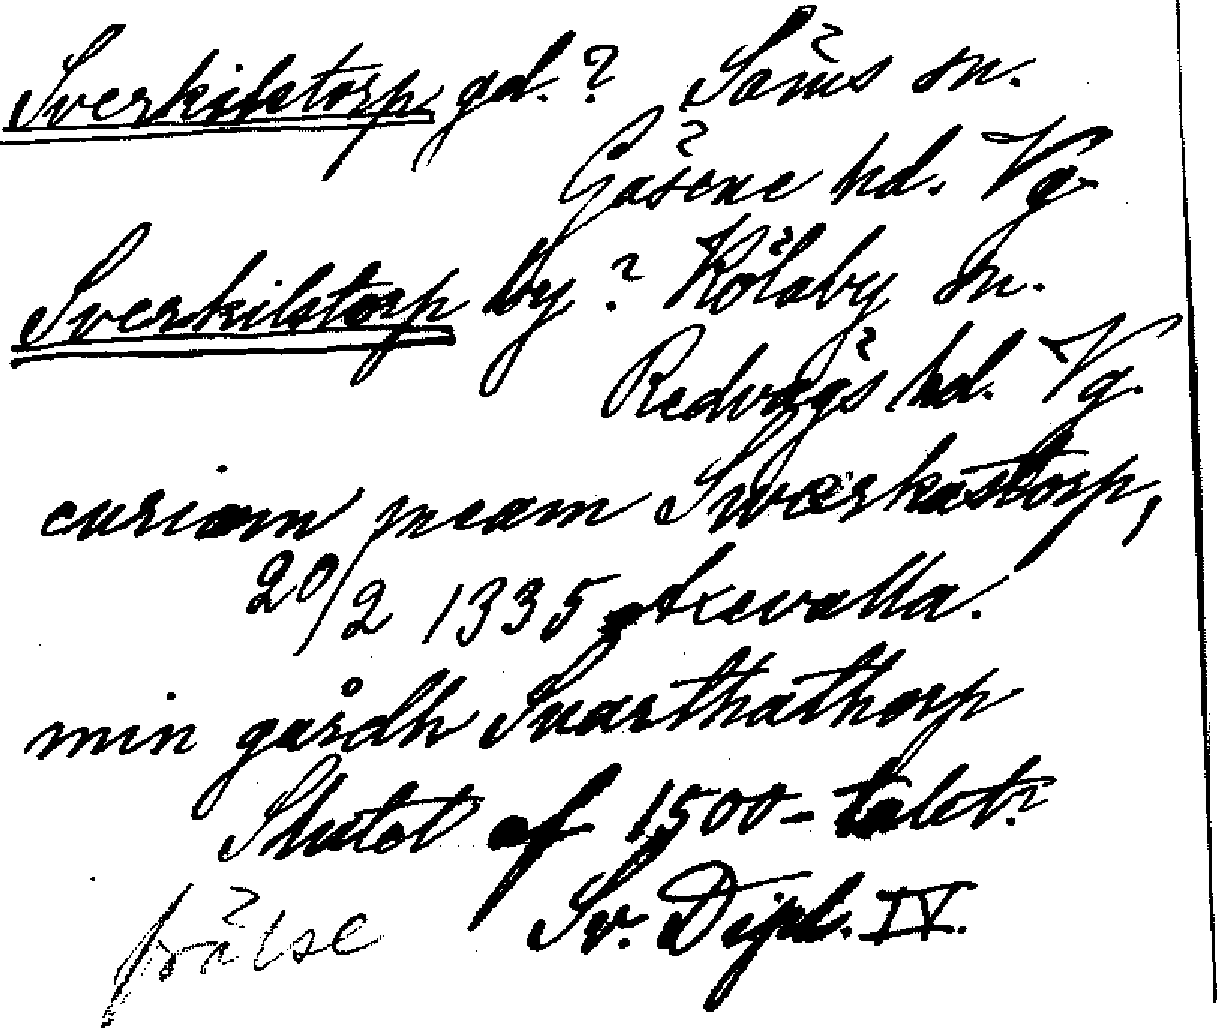 Sverkilstorp gd.? Säms sn.
Gäsene hd. Vg.
Sverkilstorp by? Kölaby sn.
Redvägs hd. Vg.
curiam meam Swærkastorp,
20/2 1335 Axevalla.
min gårdh Svarthathorp
Slutet af 1500-talet.
frälse Sv. Dipl. IV.